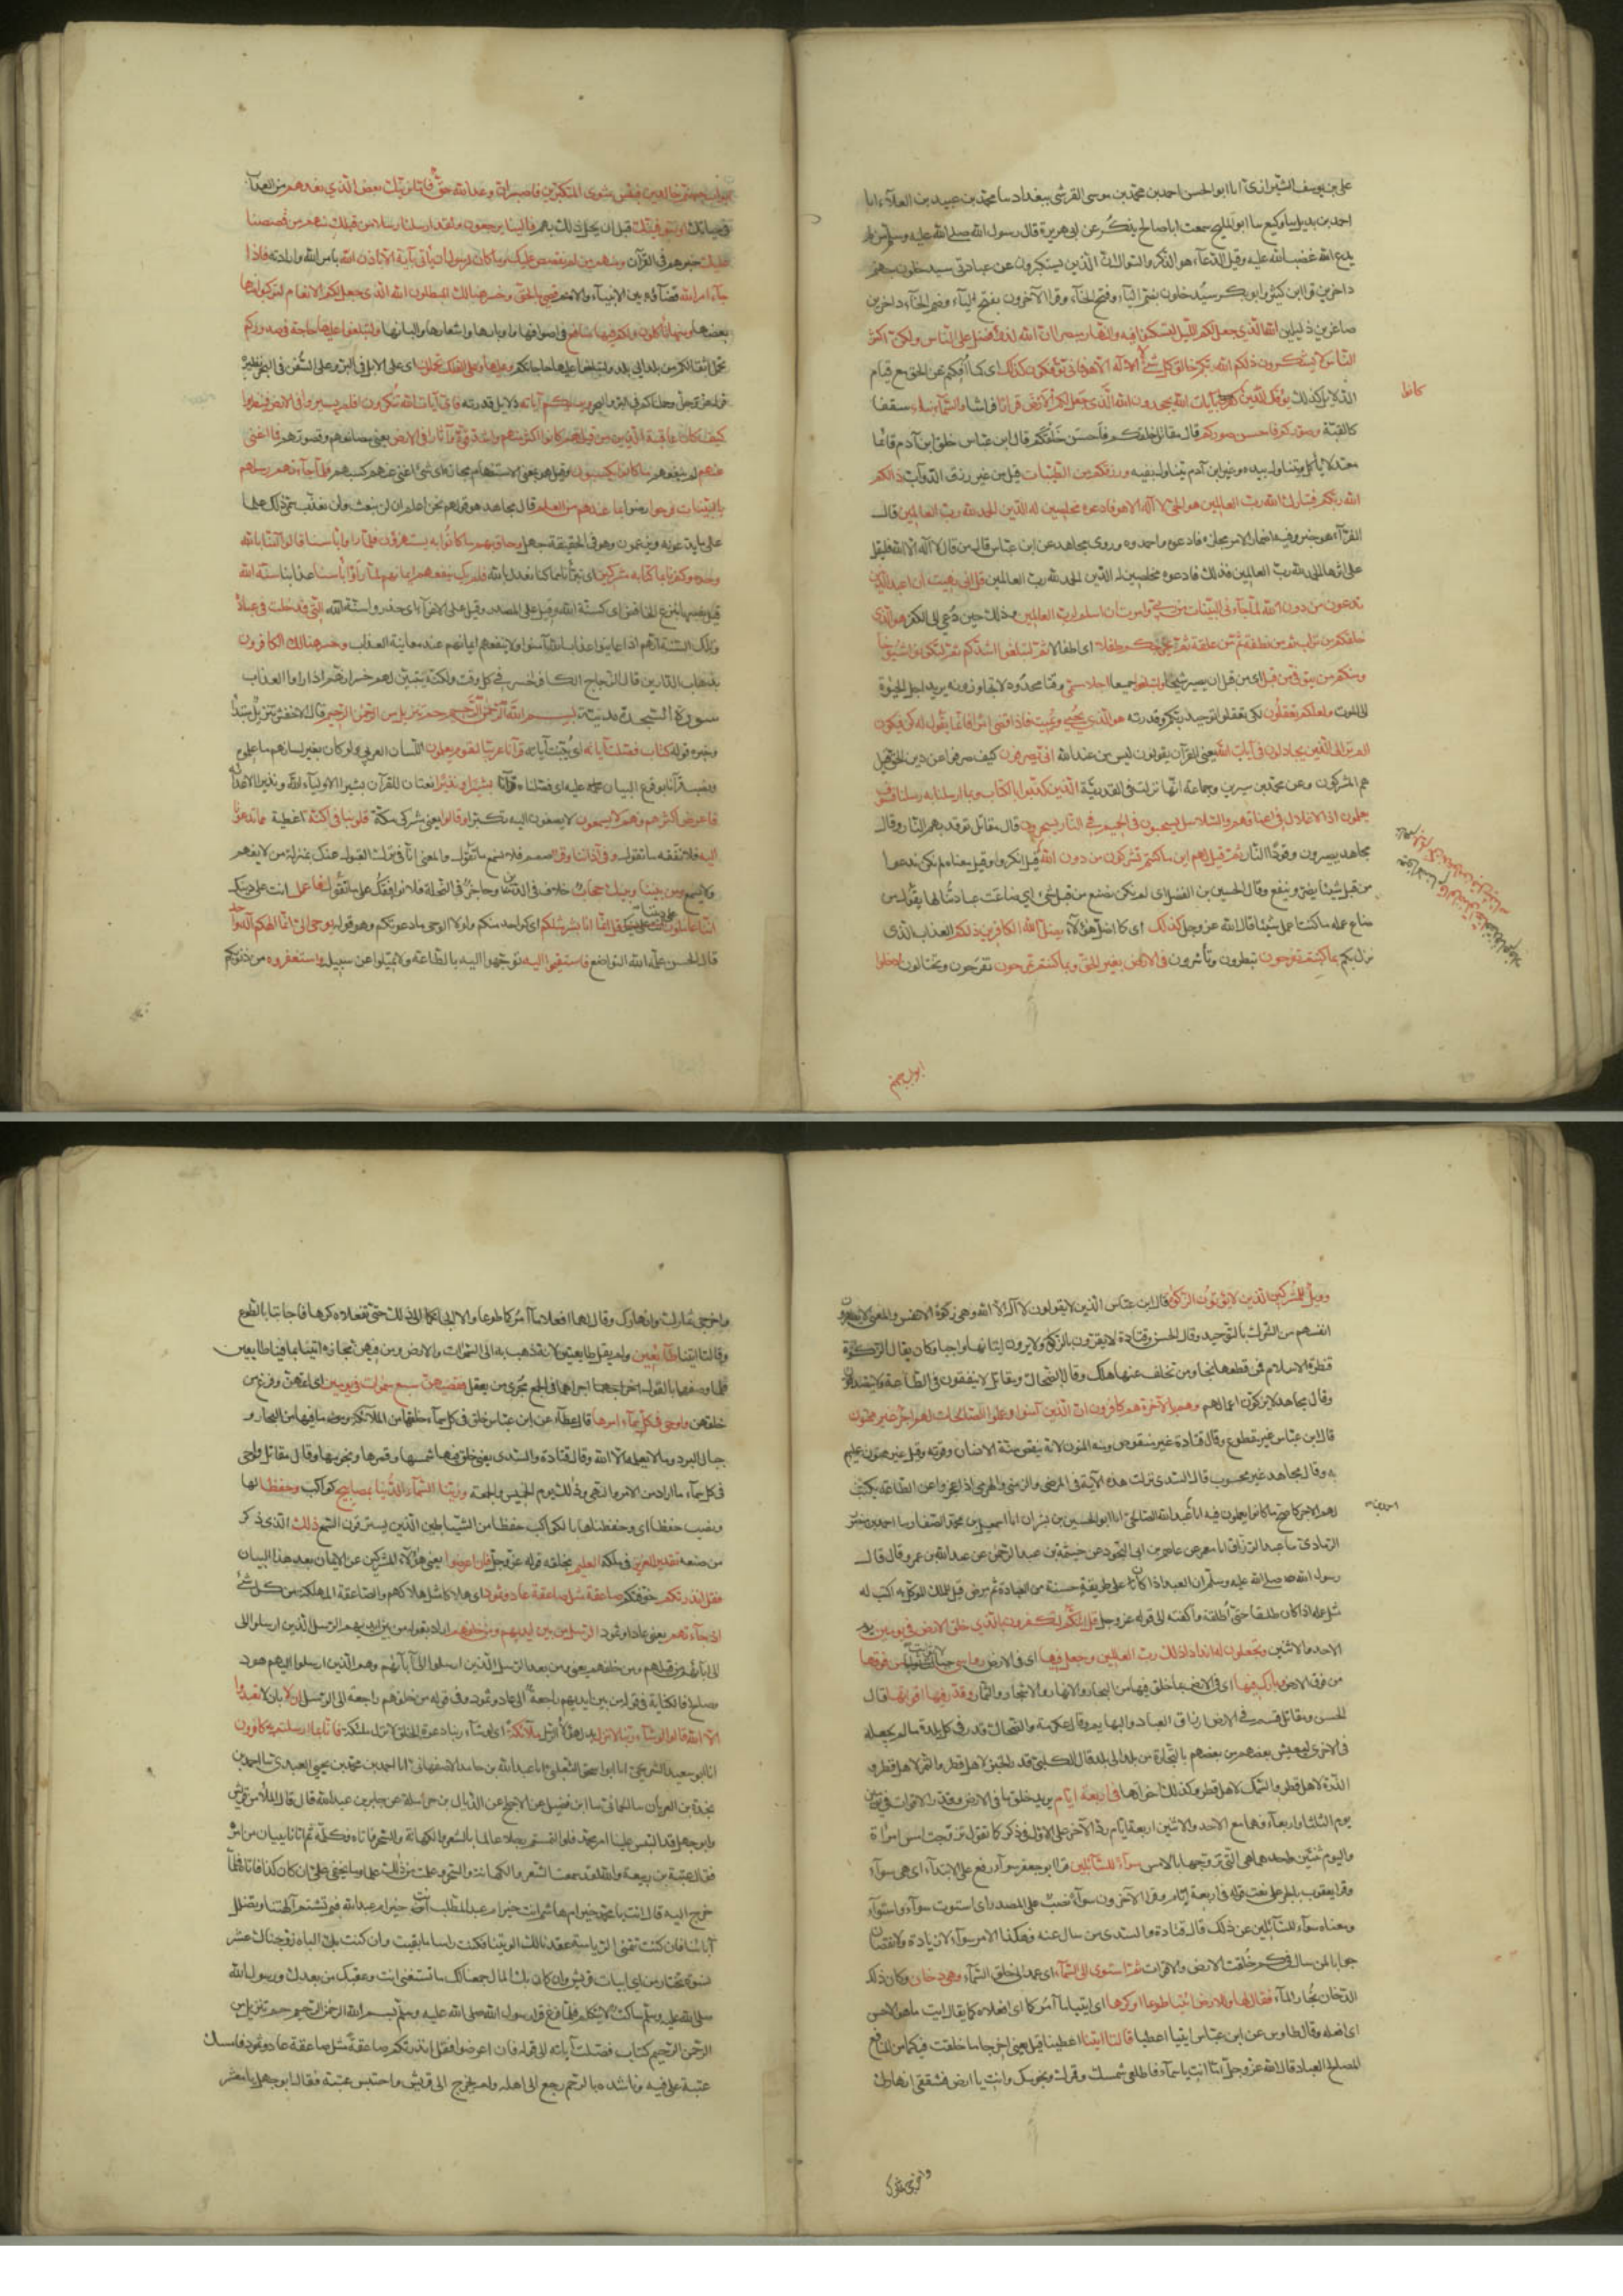 علي بن يوسف الشيرازي انا ابو الحسن احمد بن محمد بن موسى القرشي ببغداد سا محمد بن عبيد بن العلاء انا
احمد بن بديل سا وكيع سا ابو المليح سمعت اباصالح يذكر عن ابي هريرة قال رسول الله صلى الله عليه وسلم من لم
يدع الله غضب الله عليه وقيل الدعاء هو الذكر والسؤال ان الذين يستكبرون عن عبادتي سيدخلون جهنم
داخرين قرا ابن كثير وابو بكر سيدخلون بضم الياء وفتح الخاء وقرا الآخرون بفتح الياء وضم الخاء داخرين
صاغرين ذليلين الله الذي جعل لكم الليل لتسكنوا فيه والنهار مبصرا ان الله لذو فضل على الناس ولكن اكثر
الناس لا يشكرون ذلكم الله ربكم خالق كل شئ لا اله الا هو فانى تؤفكون كذلك اي كما أفكتم عن الحق مع قيام
الدلايل كذلك يؤفك الذين كانوا بآيات الله يجحدون الله الذي جعل لكم الارض قرارا فراشا والسماء بناء سقفا
كالقبة وصوركم فاحسن صوركم قال مقاتل خلقكم فاحسن خلقكم قال ابن عباس خلق ابن آدم قائما
معتدلا يأكل ويتناول بيده وغير ابن آدم يتناول بفيه ورزقكم من الطيبات قيل من غير رزق الدواب ذالكم
الله ربكم فتبارك الله رب العالمين هو الحي لا اله الا هو فادعوه مخلصين له الدين الحمد لله رب العالمين قال
الفراء هو خبر وفيه اضمار الامر مجازه فادعوه واحمدوه وروى مجاهد عن ابن عباس قال من قال لا اله الا الله فليقل
على اثرها الحمد لله رب العالمين فذلك فادعوه مخلصين له الدين الحمد لله رب العالمين قل اني نهيت ان اعبد الذين
تدعون من دون الله لما جاءني البينات من ربي وامرت ان اسلم لرب العالمين وذلك حين دعي الى الكفر هو الذي
خلقكم من تراب ثم من نطفة ثم من علقة ثم يخرجكم طفلا اي اطفالا ثم لتبلغوا اشدكم ثم لتكونوا شيوخا
ومنكم من يتوفى من قبل اي من قبل ان يصير شيخا ولتبلغوا جميعا اجلا مسمى وقتا محدودا لا تجاوزونه يريد اجل الحيوة
الى الموت ولعلكم تعقلون لكي تعقلوا توحيد ربكم وقدرته هو الذي يحيي ويميت فاذا قضى امرا فانما يقول له كن فيكون
الم تر الى الذين يجادلون في آيات الله يعني القرآن يقولون ليس من عند الله انى يصرفون كيف صرفوا عن دين الحق قيل
هم المشركون وعن محمد بن سيرين وجماعة انها نزلت في القدرية الذين كذبوا بالكتاب وبما ارسلنا به رسلنا فسوف
يعلمون اذ الاغلال في اعناقهم والسلاسل يسحبون في الحميم ثم في النار يسجرون قال مقاتل توقد بهم النار وقال
مجاهد يصيرون وقودا للنار ثم قيل لهم اين ما كنتم تشركون من دون الله قيل انكروا وقيل معناه لم نكن ندعوا
من قبل شيئا يضر وينفع وقال الحسين بن الفضل اي لم نكن نصنع من قبل شيئا اي ضاعت عبادتنا لها يقول من
ضاع عمله ما كنت اعمل شيئا قال الله عز وجل كذلك اي كما اضل هؤلاء يضل الله الكافرين ذلكم العذاب الذي
نزل بكم بما كنتم تفرحون تبطرون وتأشرون في الارض بغير الحق وبما كنتم تمرحون تفرحون وتختالون ادخلوا
ابواب جهنم
ابواب جهنم خالدين فيها فبئس مثوى المتكبرين فاصبر ان وعد الله حق فاما نرينك بعض الذي نعدهم من العذاب
في حياتك او نتوفينك قبل ان يحل ذلك بهم فالينا يرجعون ولقد ارسلنا رسلا من قبلك منهم من قصصنا
عليك خبرهم في القرآن ومنهم من لم نقصص عليك وما كان لرسول ان يأتي بآية الا باذن الله بامر الله وارادته فاذا
جاء امر الله قضاؤه بين الانبياء والامم قضي بالحق وخسر هنالك المبطلون الله الذي جعل لكم الانعام لتركبوا منها
بعضها ومنها تأكلون ولكم فيها منافع في اصوافها واوبارها واشعارها والبانها ولتبلغوا عليها حاجة في صدوركم
تحمل اثقالكم من بلد الى بلد ولتبلغوا عليها حاجاتكم وعليها وعلى الفلك تحملون اي على الابل في البر وعلى السفن في البحر نظيره
قوله عز وجل وحملناهم في البر والبحر ويريكم آياته دلايل قدرته فاي آيات الله تنكرون افلم يسيروا في الارض فينظروا
كيف كان عاقبة الذين من قبلهم كانوا اكثر منهم واشد قوة وآثارا في الارض يعني مصانعهم وقصورهم فما اغنى
عنهم لم ينفعهم ما كانوا يكسبون وقيل هو بمعنى الاستفهام مجازه اي شئ اغنى عنهم كسبهم فلما جاءتهم رسلهم
بالبينات فرحوا رضوا بما عندهم من العلم قال مجاهد هو قولهم نحن اعلم ان لن نبعث ولن نعذب سمي ذلك علما
على ما يدعونه ويزعمون وهو في الحقيقة جهل وحاق بهم ما كانوا به يستهزؤن فلما راوا باسنا قالوا آمنا بالله
وحده وكفرنا بما كنا به مشركين اي تبرأنا مما كنا نعدل بالله فلم يك ينفعهم ايمانهم لما رأوا بأسنا عذابنا سنة الله
قيل نصبها بنزع الخافض اي كسنة الله وقيل على المصدر وقيل على الاغراء اي احذروا سنة الله التي قد خلت في عباده
وتلك السنة انهم اذا عاينوا عذاب الله آمنوا ولا ينفعهم ايمانهم عند معاينة العذاب وخسر هنالك الكافرون
بذهاب الدارين قال الزجاج الكافر خاسر في كل وقت ولكنه يتبين لهم خسرانهم اذا راوا العذاب
سورة السجدة مدنية بسم الله الرحمن الرحيم حم تنزيل من الرحمن الرحيم قال الاخفش تنزيل مبتدأ
وخبره قوله كتاب فصلت آياته اي بينت آياته قرآنا عربيا لقوم يعلمون اللسان العربي ولو كان بغير لسانهم ما علموه
ونصب قرآنا بوقوع البيان عليه اي فصلناه قرآنا بشيرا ونذيرا نعتان للقرآن بشيرا لاولياء الله ونذيرا لاعدائه
فاعرض اكثرهم فهم لا يسمعون لا يصغون اليه تكبرا وقالوا يعني مشركي مكة قلوبنا في اكنة اغطية مما تدعونا
اليه فلا نفقه ما تقول وفي آذاننا وقر صمم فلا نسمع ما تقول والمعنى انا في ترك القبول عنك بمنزلة من لا يفهم
ولا يسمع ومن بيننا وبينك حجاب خلاف في الدين وحاجز في النحلة فلا نوافقك على ما تقول فاعمل انت على دينك
اننا عاملون على ديننا قل انما انا بشر مثلكم اي كواحد منكم ولولا الوحي ما دعوتكم وهو قوله يوحى الي انما الهكم اله واحد
قال الحسن علمه الله التواضع فاستقيموا اليه توجهوا اليه بالطاعة ولا تميلوا عن سبيله واستغفروه من ذنوبكم
وويل للمشركين الذين لا يؤتون الزكوة قال ابن عباس الذين لا يقولون لا اله الا الله وهي زكوة الانفس والمعنى لا يطهرون
انفسهم من الشرك بالتوحيد وقال الحسن وقتادة لا يقرون بالزكوة ولا يرون ايتائها واجبا وكان يقال الزكوة
قنطرة الاسلام فمن قطعها نجا ومن تخلف عنها هلك وقال الضحاك ومقاتل لا ينفقون في الطاعة ولا يتصدقون
وقال مجاهد لا يزكون اعمالهم وهم بالآخرة هم كافرون ان الذين آمنوا وعملوا الصالحات لهم اجر غير ممنون
قال ابن عباس غير مقطوع وقال قتادة غير منقوص ومنه المنون لانه ينقص منة الانسان وقوته وقيل غير ممنون عليهم
به وقال مجاهد غير محسوب قال السدي نزلت هذه الآية في المرضى والزمنى والهرمى اذا عجزوا عن الطاعة يكتب
لهم الاجر كاصح ما كانوا يعملون فيه انا عبد الله الصالحي انا ابو الحسين بن بشران انا اسمعيل بن محمد الصفار سا احمد بن منصور
الرمادي سا عبد الرزاق انا معمر عن عاصم بن ابي النجود عن خيثمة بن عبد الرحمن عن عبد الله بن عمرو قال قال
رسول الله صلى الله عليه وسلم ان العبد اذا كان على طريقة حسنة من العبادة ثم مرض قيل للملك الموكل به اكتب له
مثل عمله اذا كان طلقا حتى اطلقه او اكفته الي قوله عز وجل قل ائنكم لتكفرون بالذي خلق الارض في يومين يوم
الاحد والاثنين وتجعلون له اندادا ذلك رب العالمين وجعل فيها اي في الارض رواسي جبالا ثوابت من فوقها
من فوق الارض وبارك فيها اي في الارض بما خلق فيها من البحار والانهار والاشجار والثمار وقدر فيها اقواتها قال
الحسن ومقاتل قسم في الارض ارزاق العباد والبهايم وقال عكرمة والضحاك قدر في كل بلدة ما لم يجعله
في الاخرى ليعيش بعضهم من بعضهم بالتجارة من بلد الى بلد قال الكلبي قدر الخبز لاهل قطر والتمر لاهل قطر و
الذرة لاهل قطر والسمك لاهل قطر وكذلك اخواتها في اربعة ايام يريد خلق ما في الارض وقدر الاقوات في يومين
يوم الثلثا واربعاء فهما مع الاحد والاثنين اربعة ايام رد الآخر على الاول في ذكر كما تقول تزوجت امس امراة
واليوم ثنتين واحدهما هي التي تزوجها بالامس سواء للسائلين قرا ابو جعفر سواء رفع على الابتداء اي هي سواء
وقرا يعقوب بالجر على نعت قوله في اربعة ايام وقرا الآخرون سواء نصب على المصدر اي استوت سواء واستواء
ومعناه سواء للسائلين عن ذلك قال قتادة والسدي من سال عنه فهكذا الامر سواء لا زيادة ولا نقصان
جوابا لمن سال في كم خلقت الارض والاقوات ثم استوى الى السماء اي عمد الى خلق السماء وهي دخان وكان ذلك
الدخان بخار الماء فقال لها وللارض ائتيا طوعا او كرها اي ايتيا ما آمركما اي افعلاه كما يقال ايت ما هو الاحسن
اي افعله وقال طاوس عن ابن عباس ايتيا اعطيا قالتا اتينا اعطينا قيل يعني اخرجا ما خلقت فيكما من المنافع
لمصالح العباد قال الله عز وجل اما انت يا سماء فاطلعي شمسك وقمرك ونجومك وانت يا ارض فشققي انهارك
واخرجي ثمارك
واخرجي ثمارك وانهارك وقال لهما افعلا ما آمركما طوعا والا الجأتكما الى ذلك حتى تفعلاه كرها فاجابتا بالطوع
وقالتا اتينا طائعين ولم يقل طايعتين لانه ذهب به الى السموات والارض ومن فيهن مجازه اتينا بما فينا طايعين
فلما وصفهما بالقول اجراهما في الجمع مجرى من يعقل فقضيهن سبع سموات في يومين اي اتمهن وفرغ من
خلقهن واوحى في كل سماء امرها قال عطاء عن ابن عباس خلق في كل سماء خلقها من الملائكة وما فيها من البحار و
جبال البرد وما لا يعلمه الا الله وقال قتادة والسدي يعني خلق فيها شمسها وقمرها ونجومها وقال مقاتل واوحى
في كل سماء ما اراد من الامر والنهي وذلك يوم الخميس والجمعة وزينا السماء الدنيا بمصابيح كواكب وحفظا لها
ونصب حفظا اي وحفظناها بالكواكب حفظا من الشياطين الذين يسترقون السمع ذلك الذي ذكر
من صنعه تقدير العزيز في ملكه العليم بخلقه قوله عز وجل فان اعرضوا يعني هؤلاء المشركين عن الايمان بعد هذا البيان
فقل انذرتكم خوفتكم صاعقة مثل صاعقة عاد وثمود اي هلاكا مثل هلاكهم والصاعقة المهلكة من كل شئ
اذ جاءتهم يعني عادا وثمود الرسل من بين ايديهم ومن خلفهم اراد بقوله من بين ايديهم الرسل الذين ارسلوا الى
آبائهم من قبلهم ومن خلفهم يعني ومن بعد الرسل الذين ارسلوا الى آبائهم وهم الذين ارسلوا اليهم هود
وصالح فالكناية في قوله من بين ايديهم راجعة الى عاد وثمود وفي قوله من خلفهم راجعة الى الرسل ان لا بان لا تعبدوا
الا الله قالوا لو شاء ربنا لانزل بدل هؤلاء الرسل ملائكة اي لو شاء ربنا دعوة الخلق لانزل ملئكة فانا بما ارسلتم به كافرون
انا ابو سعيد الشريحي انا ابو اسحق الثعلبي انا عبد الله بن حامد الاصفهاني انا احمد بن محمد بن يحيى العبدي سا احمد بن
نجدة بن العريان سا الحماني سا ابن فضيل عن الاجلح عن الذيال بن حرملة عن جابر بن عبد الله قال قال الملأ من قريش
وابو جهل قد التبس علينا امر محمد فلو التمستم رجلا عالما بالشعر والكهانة والسحر فاتاه فكلمه ثم اتانا ببيان من امره
فقال عتبة بن ربيعة والله لقد سمعت الشعر والكهانة والسحر وعلمت من ذلك علما وما يخفى علي ان كان كذا فاتاه فلما
خرج اليه قال انت يا محمد خير ام هاشم انت خير ام عبد المطلب انت خير ام عبد الله فبم تشتم آلهتنا وتضلل
آبائنا فان كنت تتمنى الرياسة عقدنا لك الويتنا فكنت راسا ما بقيت وان كنت بك الباه زوجناك عشر
نسوة تختار من اي ابيات قريش وان كان بك المال جمعنا لك ما تستغني انت وعقبك من بعدك ورسول الله
صلى الله عليه وسلم ساكت لا يتكلم فلما فرغ قرا رسول الله صلى الله عليه وسلم بسم الله الرحمن الرحيم حم تنزيل من
الرحمن الرحيم كتاب فصلت آياته الى قوله فان اعرضوا فقل انذرتكم صاعقة مثل صاعقة عاد وثمود فامسك
عتبة على فيه وناشده بالرحم رجع الى اهله ولم يخرج الى قريش واحتبس عتبة فقال ابو جهل يا معشر